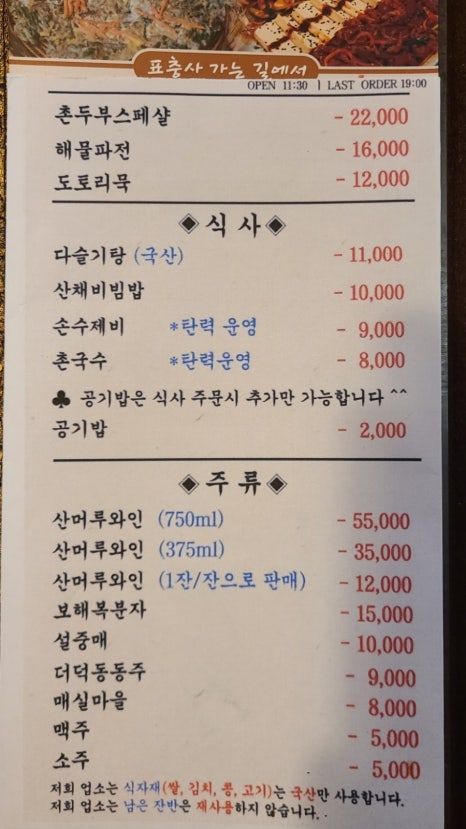 표충사 가는 길에서
OPEN 11:30 | LAST ORDER 19:00
촌두부스페샬 - 22,000
해물파전 - 16,000
도토리묵 - 12,000
◈식 사◈
다슬기탕 (국산) - 11,000
산채비빔밥 - 10,000
손수제비 *탄력 운영 - 9,000
촌국수 *탄력운영 - 8,000
♣ 공기밥은 식사 주문시 추가만 가능합니다 ^^
공기밥 - 2,000
◈주 류◈
산머루와인 (750ml) - 55,000
산머루와인 (375ml) - 35,000
산머루와인 (1잔/잔으로 판매) - 12,000
보해복분자 - 15,000
설중매 - 10,000
더덕동동주 - 9,000
매실마을 - 8,000
맥주 - 5,000
소주 - 5,000
저희 업소는 식자재(쌀, 김치, 콩, 고기)는 국산만 사용합니다.
저희 업소는 남은 잔반은 재사용하지 않습니다.